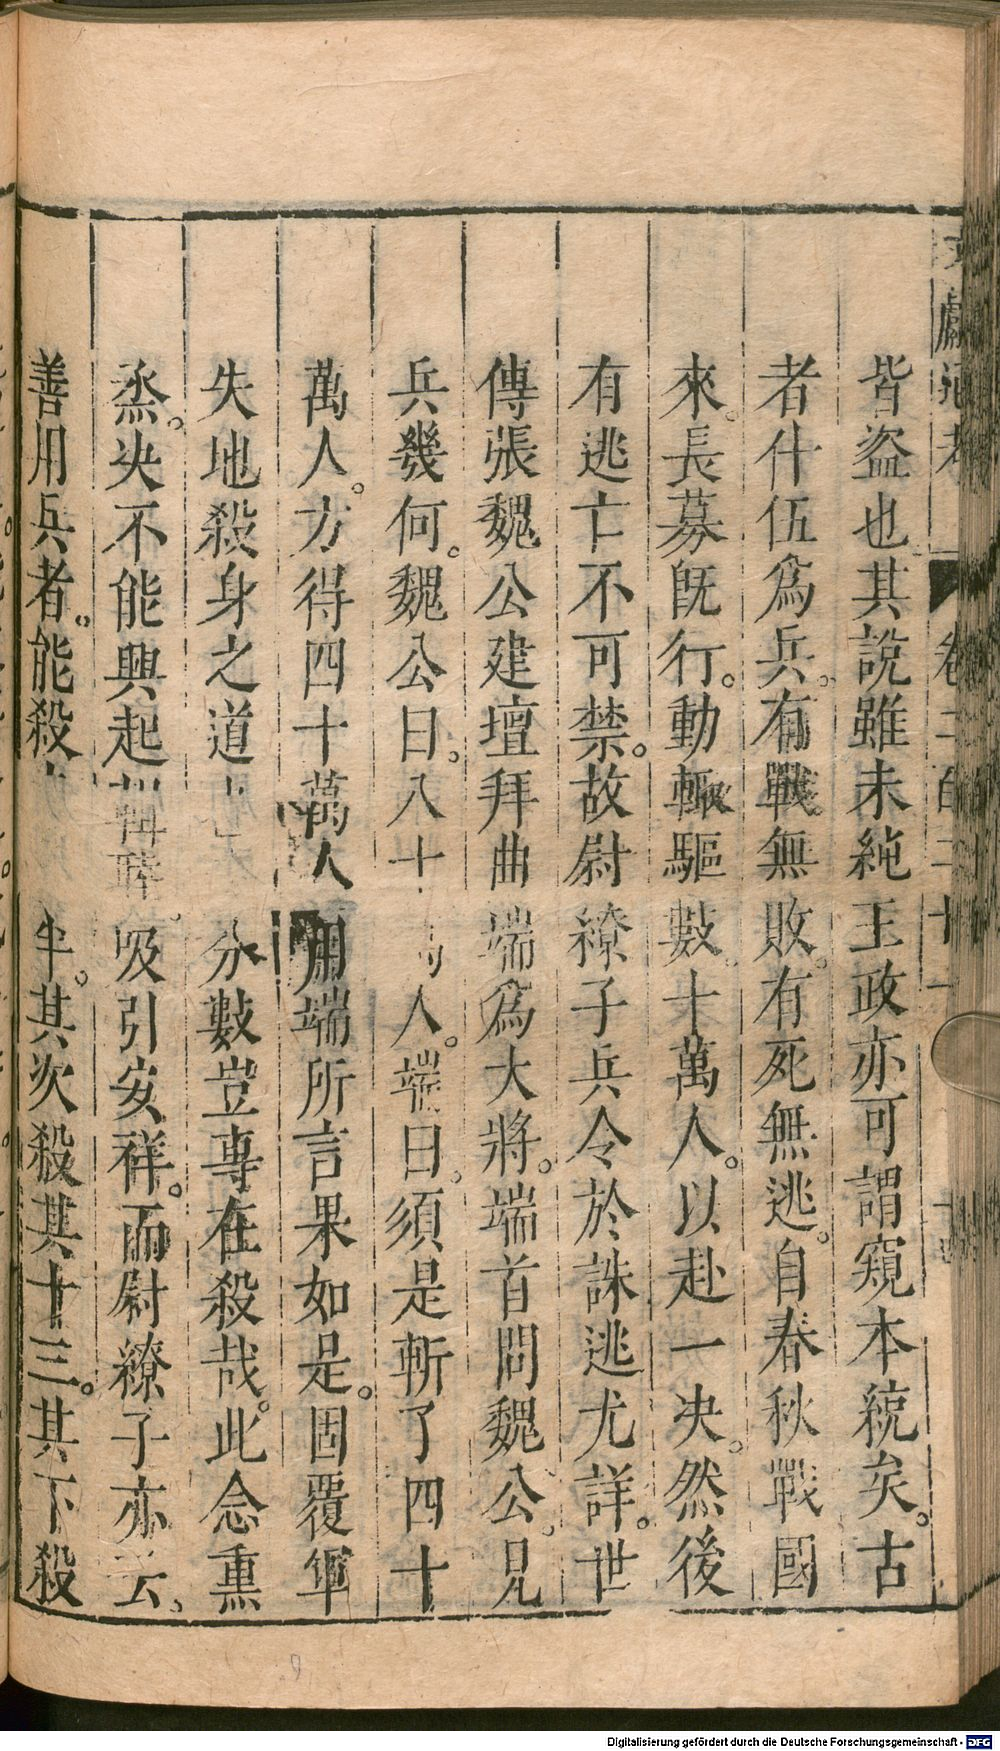 文獻通考 卷二百二十一
皆盜也其說雖未純王政亦可謂窺本統矣。古
者什伍爲兵。有戰無敗。有死無逃。自春秋戰國
來。長募旣行。動輒驅數十萬人。以赴一决。然後
有逃亡不可禁。故尉繚子兵令於誅逃尤詳。世
傳張魏公建壇拜曲端爲大將。端首問魏公。見
兵幾何。魏公曰。八十萬人。端曰。須是斬了四十
萬人。方得四十萬人用端所言果如是。固覆軍
失地殺身之道 分數豈專在殺哉。此念熏
烝。决不能興起 吸引安祥。而尉繚子亦云。
善用兵者。能殺 半。其次殺其十三。其下殺
Digitalisierung gefördert durch die Deutsche Forschungsgemeinschaft - DFG